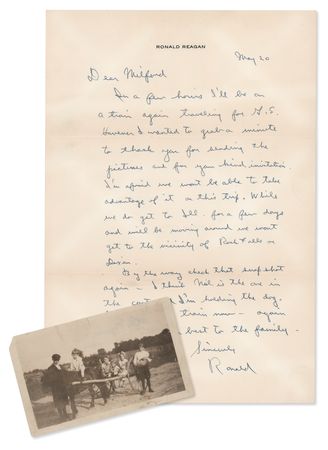 RONALD REAGAN
May 20
Dear Milford
In a few hours I'll be on
a train again traveling for G.E.
However I wanted to grab a minute
to thank you for sending the
pictures and for your kind invitation.
I'm afraid we wont be able to take
advantage of it on this trip. While
we do get to Ill. for a few days
and will be moving around we wont
get to the vicinity of Rock Falls or
Dixon.
By the way check that snap shot
again – I think Neil is the one in
the cart and I'm holding the dog.
train now – again
best to the family –
Sincerely
Ronald